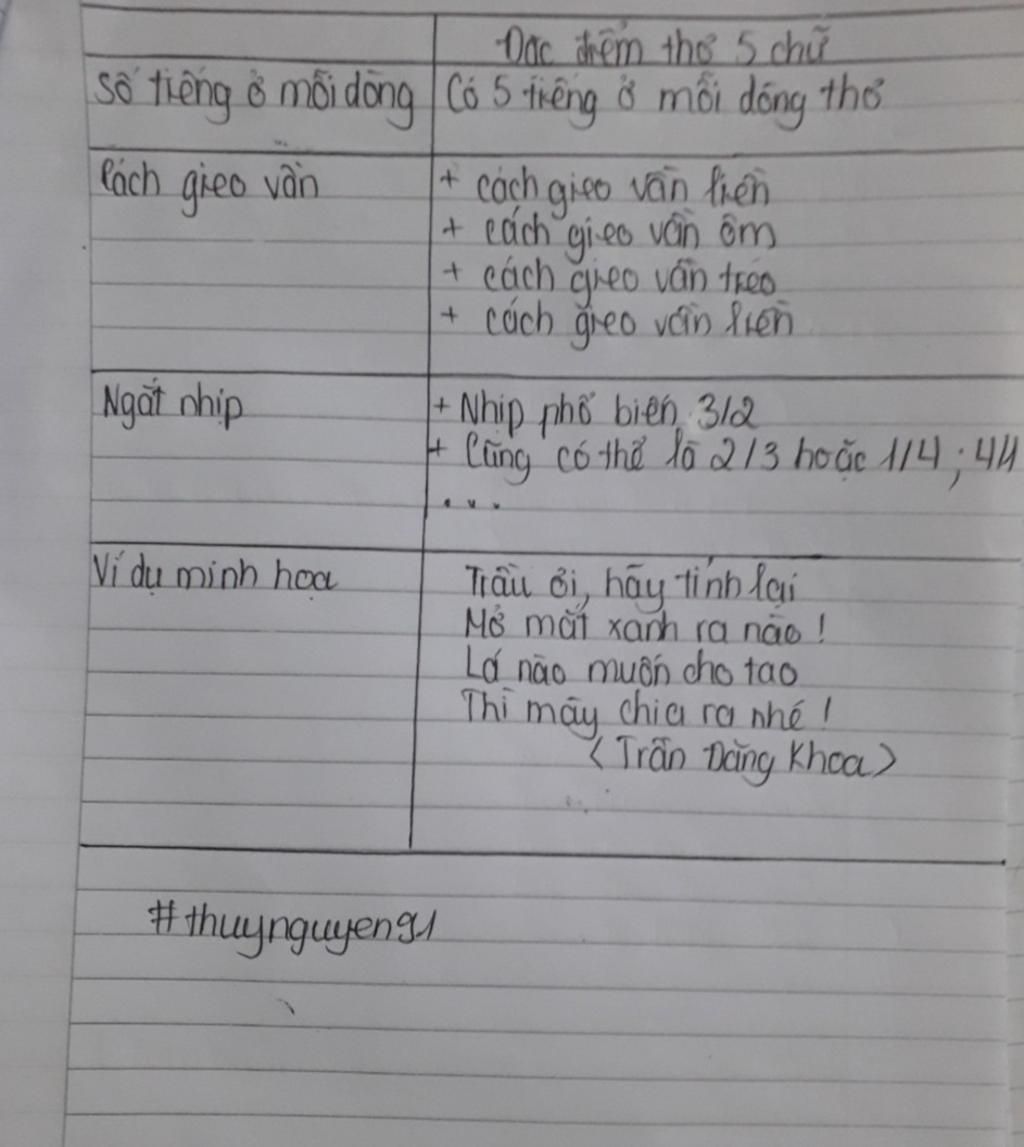 Đăc điểm thơ 5 chữ
Số tiếng ở mỗi dòng Có 5 tiếng ở mỗi dòng thơ
Cách gieo vần + cách gieo vần liền
+ cách gieo vần ôm
+ cách gieo vần treo
+ cách gieo vần liền
Ngắt nhịp + Nhịp phổ biến 3/2
+ Cũng có thể là 2/3 hoặc 1/4; 4/1
...
Ví dụ minh họa Trầu ơi, hãy tỉnh lại
Mở mắt xanh ra nào!
Lá nào muốn cho tao
Thì mày chìa ra nhé!
(Trần Đăng Khoa)
#thuynguyen91